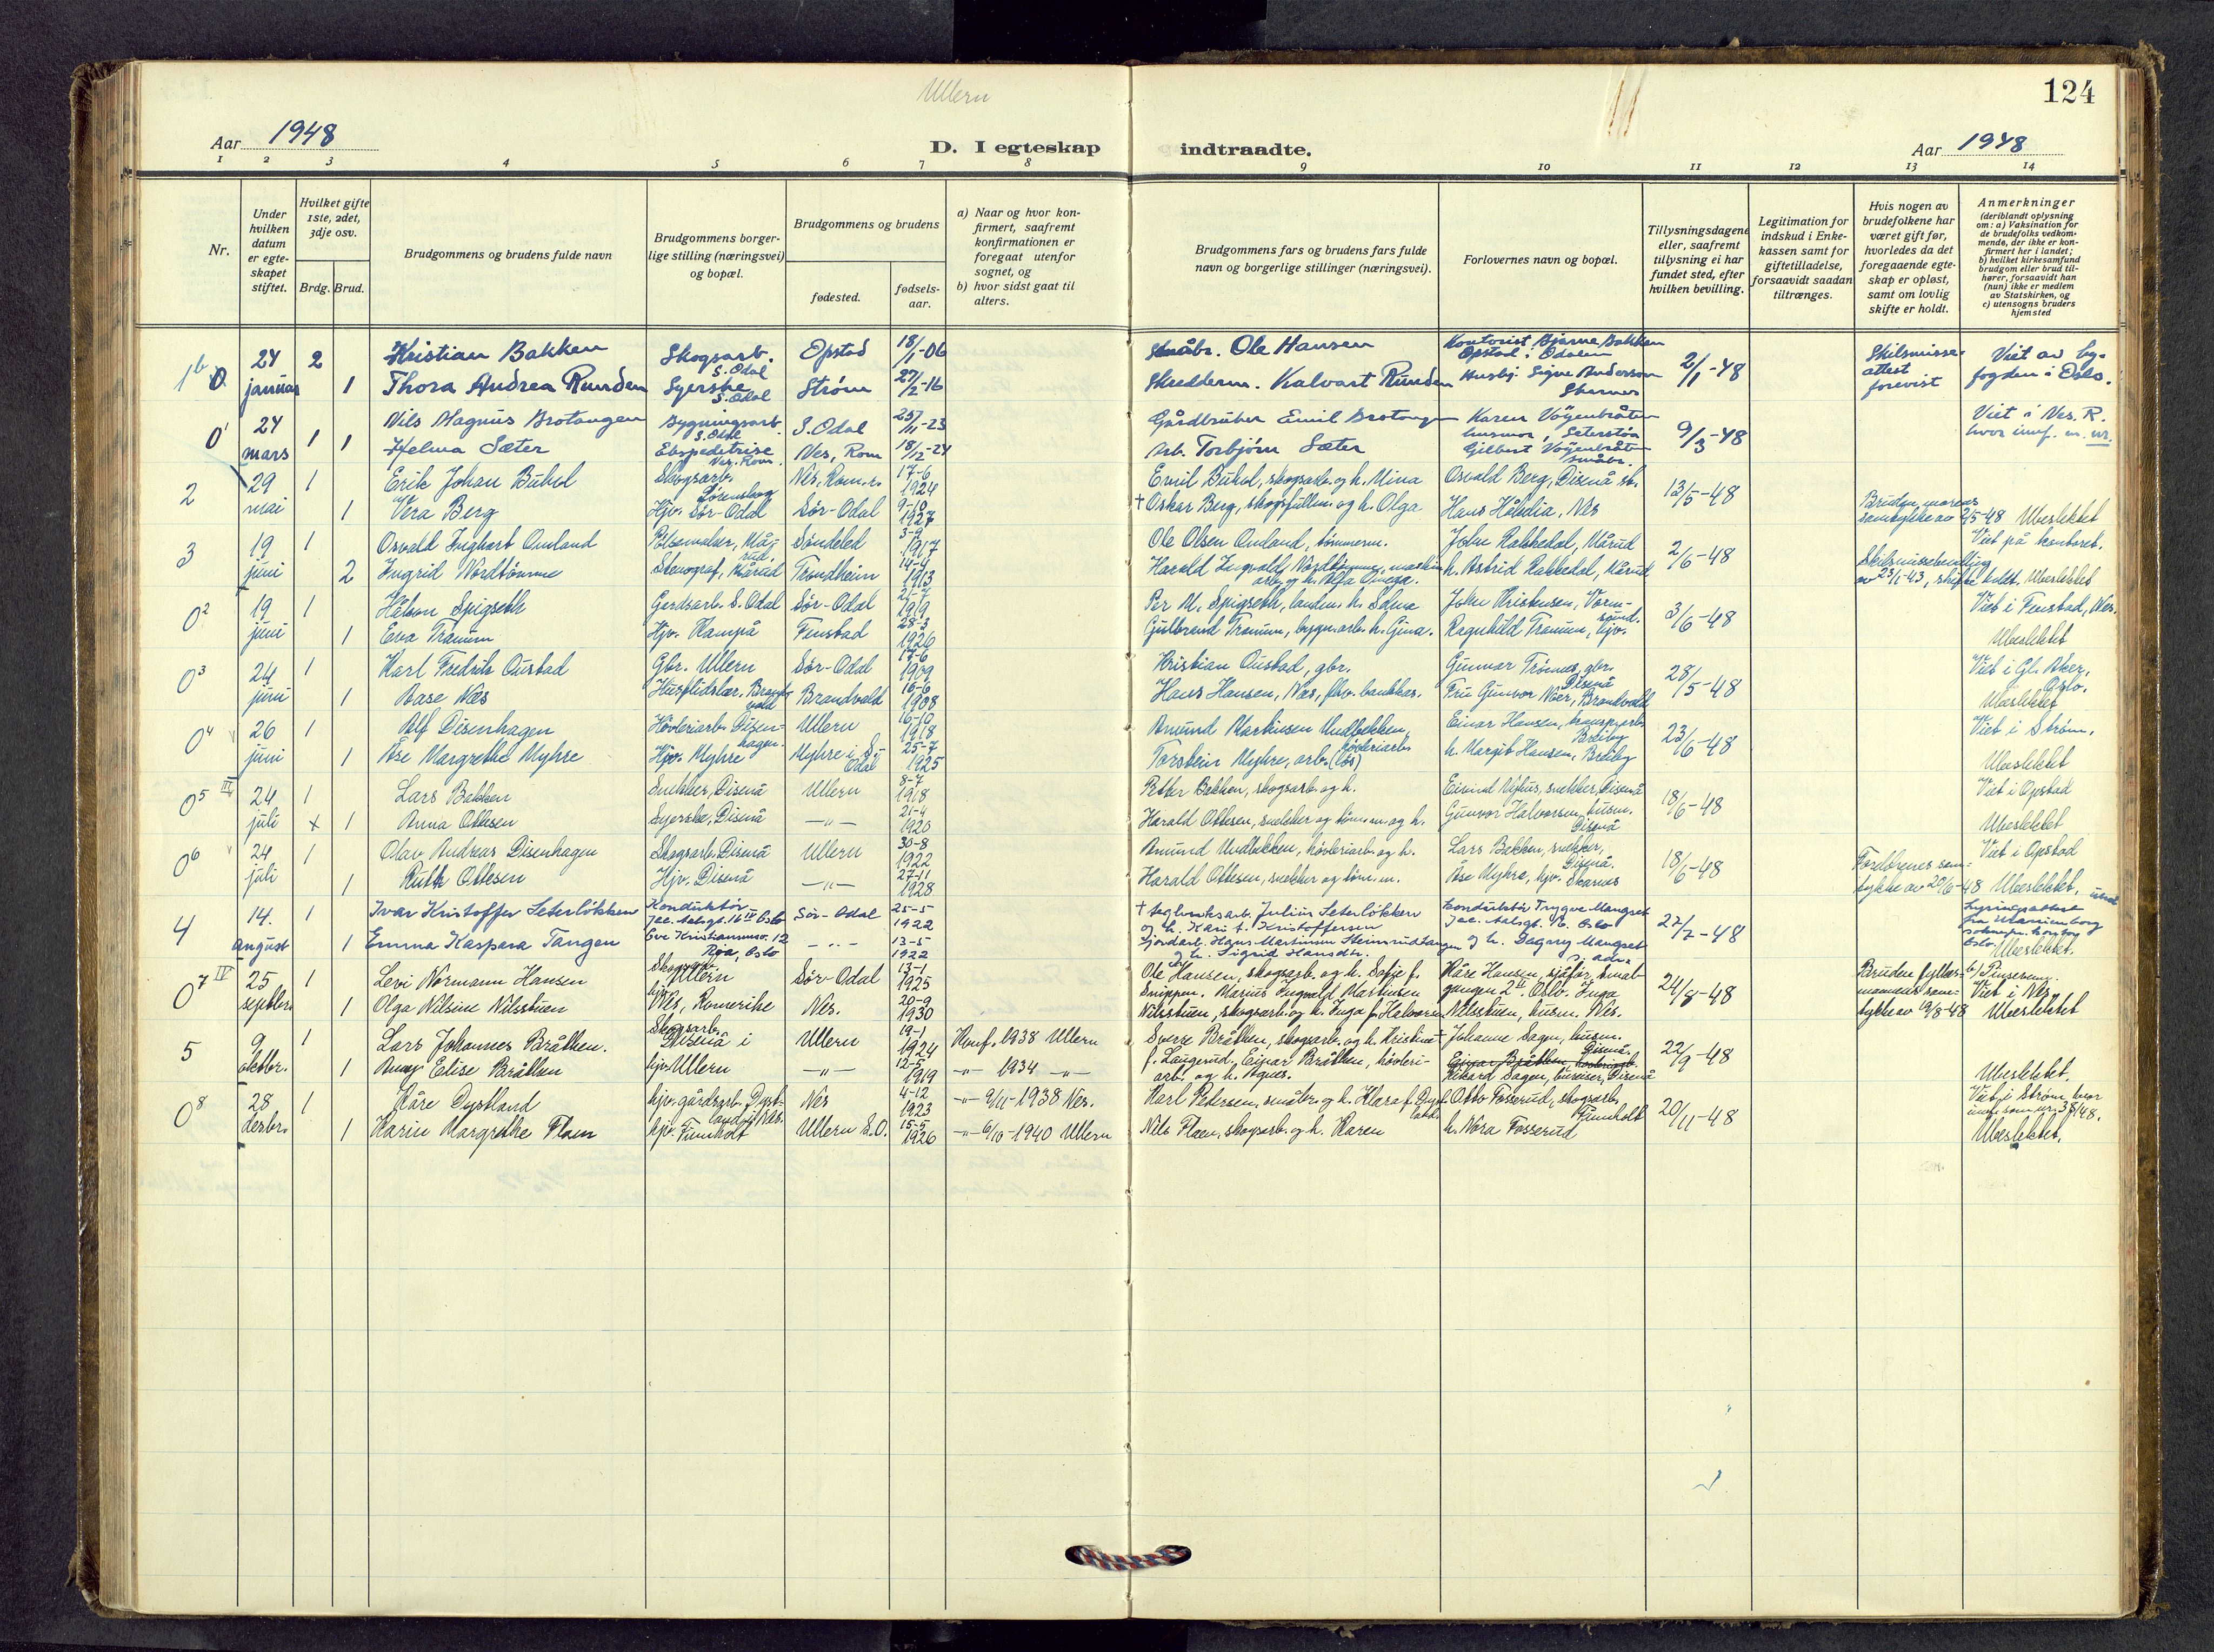 Ullern
124
Aar 1948
D. I egteskap indtraadte.
Aar 1948
1 2 3 4 5 6 7 8 9 10 11 12 13 14
Nr.
Under hvilken datum er egteskapet stiftet.
Hvilket gifte 1ste, 2det, 3dje osv.
Brdg. Brud.
Brudgommens og brudens fulde navn
Brudgommens borgerlige stilling (næringsvei) og bopæl.
Brudgommens og brudens
fødested.
fødselsaar.
a) Naar og hvor konfirmert, saafremt konfirmationen er foregaat utenfor sognet, og
b) hvor sidst gaat til alters.
Brudgommens fars og brudens fars fulde navn og borgerlige stillinger (næringsvei).
Forlovernes navn og bopæl.
Tillysningsdagene eller, saafremt tillysning ei har fundet sted, efter hvilken bevilling.
Legitimation for indskud i Enkekassen samt for giftetilladelse, forsaavidt saadan tiltrænges.
Hvis nogen av brudefolkene har været gift før, hvorledes da det foregaaende egteskap er opløst, samt om lovlig skifte er holdt.
Anmerkninger (deriblandt oplysning om: a) Vaksination for de brudefolks vedkommende, der ikke er konfirmert her i landet; b) hvilket kirkesamfund brudgom eller brud tilhører, forsaavidt han (hun) ikke er medlem av Statskirken, og c) utensogns bruders hjemsted
24 2 Kristian Bakken Skogsarb. S. Odal Opstad 18/1-06 Småbr. Ole Hansen Kontorist Bjarne Bakken Opstad i Odalen 2/1-48 Skilsmisseattest forevist Viet av byfogden i Oslo.
januar 1 Thora Andrea Runden Syerske S. Odal Strøm 27/2-16 Skredderm. Kalvart Runden Husbj. Signe Anderson Skarnes
24 1 Nils Magnus Brotangen Bygningsarb. S. Odal S. Odal 25/11-23 Gårdbruker Emil Brotangen Karen Vögenbråten husmor, Seterstøa 9/3-48 Viet i Nes. R. hvor innf. m. nr.
mars 1 Helma Sæter Ekspeditrise Nes. Rom. Nes, Rom 18/12-24 Arb. Torbjørn Sæter Gilbert Vögenbråten småbr.
2 29 1 Erik Johan Bühol Skogsarb. Nes, Rom.r. 17-6 1924 Emil Bühol, skogsarb. og h. Mina Osvald Berg, Disenå st. 13/5-48
mai 1 Vera Berg Hjv. Sør-Odal Sør-Odal 9-10 1927 + Oskar Berg, skogsfullm. og h. Olga Hans Hålølia, Nes samtykke av 2/5-48 Ubeslektet
3 19 1 Osvald Inghart Omland Søndeled 3-9 1917 Ole Olsen Omland, tømmerm. John Rakkedal, Kårud 2/6-48 Viet på kontoret.
juni 2 Ingrid Nordtömme Stenograf, Kårud Trondheim 14-4 1913 h. Astrid Rakkedal, Kårud Skilsmissebevilling av 23/1-43, skifte holdt. Ubeslektet
0² 19 1 Håkon Spigseth Gardsarb. S. Odal Sør-Odal 21-7 1919 Per M. Spigseth, landm. h. Selma John Kristensen, Vormsund. 3/6-48 Viet i Fenstad, Nes.
juni 1 Eva Tranum Hjv. Kampå Fenstad 28-3 1926 Gulbrand Tranum, bygn.arb. h. Gina. Ragnhild Tranum, hjv. Ubeslektet
0³ 24 1 Karl Fredrik Oustad Gbr. Ullern Sør-Odal 17-6 1909 Kristian Oustad, gbr. Gunnar Trønnes, gbr. Disenå 28/5-48 Viet i Gl. Aker, Oslo.
juni 1 Aase Næs Husflidslær. Brandvold Brandvold 16-6 1908 Hans Hansen, Næs, fhv. bankkas. Fru Gunvor Næs, Brandvold Ubeslektet
0⁴ 26 1 Alf Disenhagen Høvleriarb. Disenhagen. Ullern 16-10 1918 Amund Martinsen Undbekken, høvleriarb. Einar Hansen, transp.arb. Bråby 23/6-48 Viet i Strøm.
juni 1 Åse Margrethe Myhre Hjv. Myhre Myhre i S. Odal 25-7 1925 Torstein Myhre, arb. (løs) h. Margit Hansen, Bråby Ubeslektet
0⁵ III 24 1 Lars Bakken Snekker, Disenå Ullern 8-7 1918 Petter Bakken, skogsarb. og h. Eivind Nyhus, snekker, Disenå 18/6-48 Viet i Opstad
juli x 1 Anna Ottesen Syerske, Disenå —"— 21-4 1920 Harald Ottesen, snekker og tøm.m. og h. Gunvor Halvorsen, husm. Disenå Ubeslektet
0⁶ 24 1 Olav Andreas Disenhagen Skogsarb. Disenå Ullern 30-8 1922 Amund Undbekken, høvleriarb. og h. Lars Bakken, snekker, Disenå. 18/6-48 Foreldrenes samtykke av 20/6-48 Viet i Opstad
juli 1 Ruth Ottesen Hjv. Disenå —"— 27-11 1928 Harald Ottesen, snekker og tøm.m. Åse Myhre, hjv. Skarnes Ubeslektet.
4 14. 1 Ivar Kristoffer Seterlökken Konduktör Jac. Aalsgt. 16 IV Oslo Sør-Odal 25-5 1922 + teglverksarb. Julius Seterlökken og h. Kari f. Kristoffersen konduktör Trygve Mangset Jac. Aalsgt. 16. Oslo 27/7-48
august 1 Emma Kaspara Tangen 12 Oslo — " — 13-5 1922 og h. Sigrid Hansdtr. og h. Dagny Mangset Ubeslektet.
0⁷ IV 25 1 Levi Normann Hansen Skogsarb. Ullern Sør-Odal 13-1 1925 Ole Hansen, skogsarb. og h. Sofie f. Snippen. Kåre Hansen, sjåfør, 24/8-48 Viet i Nes.
septbr. 1 Olga Nilsine Nilsstuen Nes, Romerike Nes. 20-9 1930 Marius Ingvald Martinsen Nilsstuen, skogsarb. og h. Inga f. Halvorsen Oslo. Inga Nilsstuen, husm. Nes. samtykke av 19/8-48 Ubeslektet
5 9 1 Lars Johannes Bråthen. Skogsarb. Disenå i Ullern 19-1 1924 Konf. 1938 Ullern Sverre Bråthen, skogsarb. og h. Kristine f. Langerud. Johanne Sagen, husm. Disenå. 22/9-48
oktbr. 1 Anny Elise Bråthen hjv. Ullern —"— 12-5 1919 —"— 1934 —"— Einar Bråthen, høvleriarb. og h. Agnes. Einar Bråthen, høvleriarb. Rikard Sagen, bureiser, Disenå Ubeslektet.
0⁸ 28 1 Kåre Dystland gårdsarb. Nes 4-12 1923 —"— 9/11-1938 Nes. Karl Pedersen, småbr. og h. Klara Otto Fosserud, skogsarb. Funnholt 20/11-48 Viet i Strøm, hvor innf. som nr. 38/48.
desbr. 1 Karin Margrethe Flaen hjv. Funnholt Ullern S.O. 15-5 1926 —"— 6/10-1940 Ullern Nils Flaen, skogsarb. og h. Karen h. Nora Fosserud Ubeslektet.